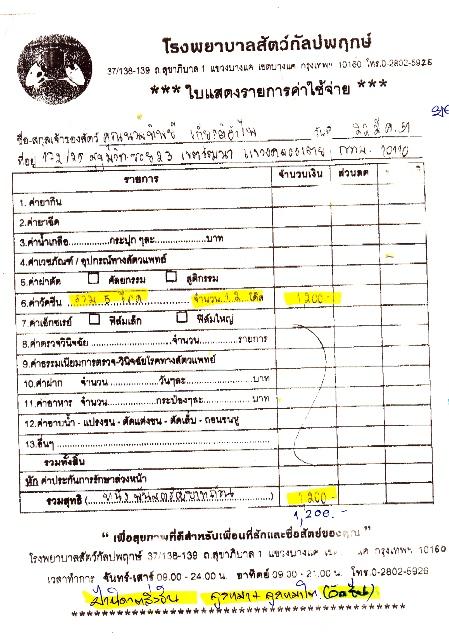 โรงพยาบาลสัตว์กัลปพฤกษ์
37/138-139 ถ.สุขาภิบาล 1 แขวงบางแค เขตบางแค กรุงเทพฯ 10160 โทร.0-2802-5926
*** ใบแสดงรายการค่าใช้จ่าย ***
ชื่อ-สกุลเจ้าของสัตว์ คุณ วันที่
ที่อยู่ 172/25 สุขุมวิท ซอย 23 กทม. 10110
รายการ จำนวนเงิน ส่วนลด
1. ค่ายากิน
2. ค่ายาฉีด
3. ค่าน้ำเกลือ................กระปุก ๆละ..................บาท
4. ค่าเวชภัณฑ์ / อุปกรณ์ทางสัตว์แพทย์
5. ค่าผ่าตัด ศัลยกรรม สูติกรรม
6. ค่าวัคซีน รวม 5 โรค จำนวน 12 โด๊ส 1,200.-
7. ค่าเอ็กซเรย์ ฟิล์มเล็ก ฟิล์มใหญ่
8. ค่าตรวจวินิจฉัย.....................จำนวน................รายการ
9. ค่าธรรมเนียมการตรวจ-วินิจฉัยโรคทางสัตว์แพทย์
10. ค่าฝาก จำนวน....................วันๆละ....................บาท
11. ค่าอาหาร จำนวน....................กระป๋องๆละ................บาท
12. ค่าอาบน้ำ - แปรงขน - ตัดแต่งขน - ตัดเล็บ - ถอนขนหู
13. อื่นๆ
รวมทั้งสิ้น
หัก ค่าประกันการรักษาล่วงหน้า
รวมสุทธิ (หนึ่งพันสองร้อยบาทถ้วน) 1,200.-
1,200.-
" เพื่อสุขภาพที่ดีสำหรับเพื่อนที่รักและซื่อสัตย์ของคุณ "
โรงพยาบาลสัตว์กัลปพฤกษ์ 37/138-139 ถ.สุขาภิบาล 1 แขวงบางแค เขต แค กรุงเทพฯ 10160
เวลาทำการ จันทร์-เสาร์ 09.00 - 24.00 น. อาทิตย์ 09.00 - 21.00 น. โทร.0-2802-5926
(วัคซีน)